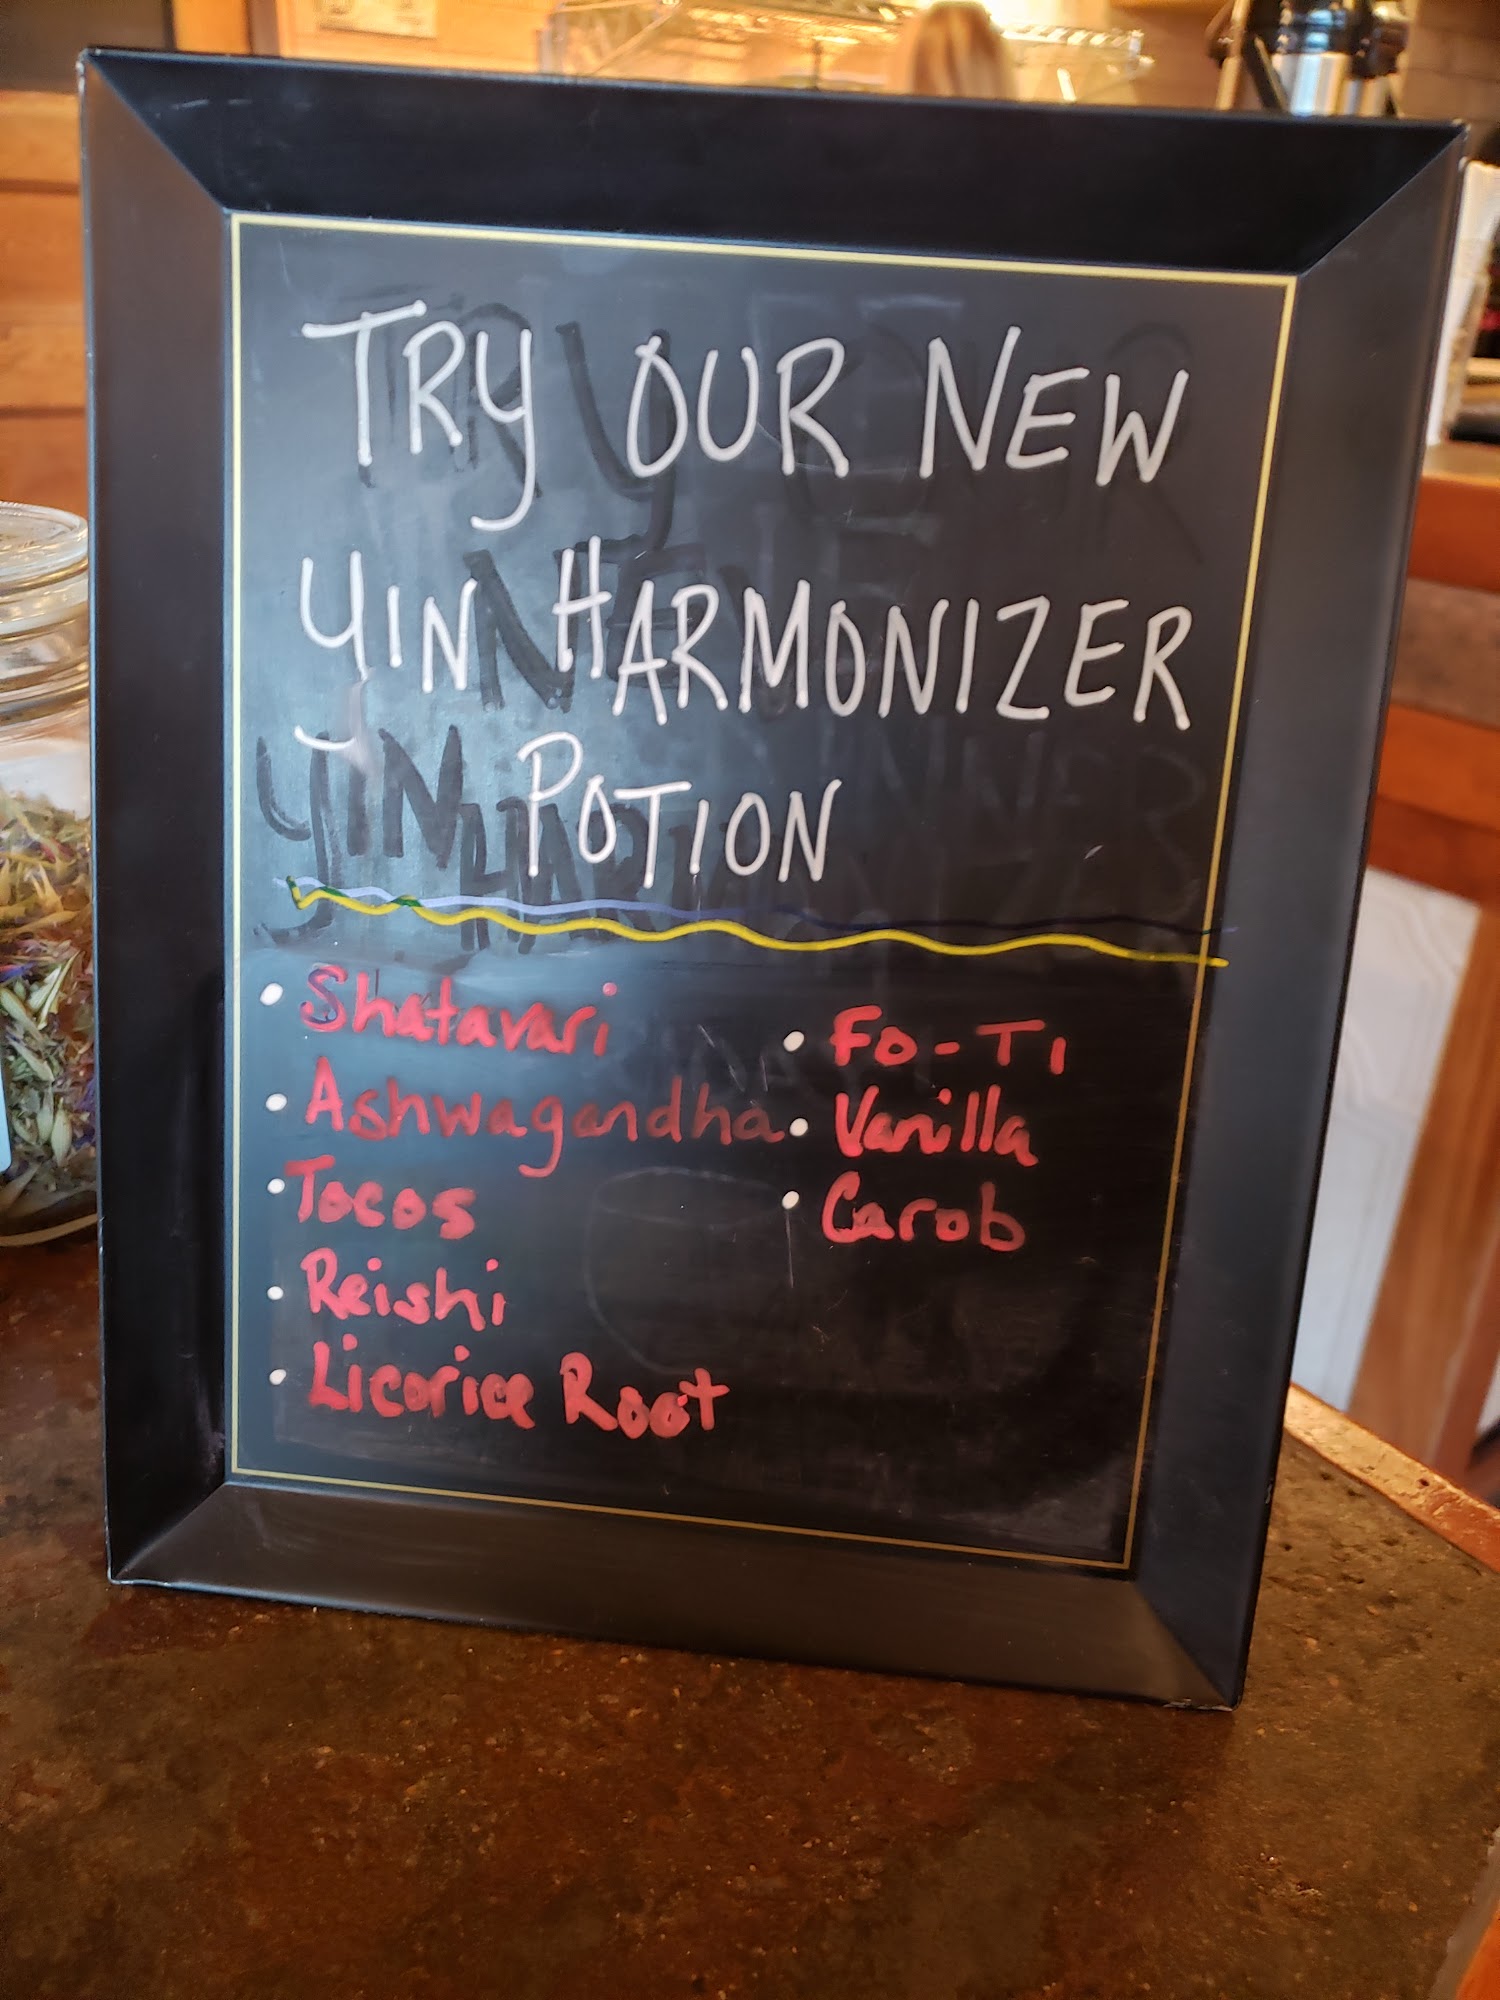 TRY OUR NEW
YIN HARMONIZER
POTION
• Shatavari
• Ashwagandha
• Tocos
• Reishi
• Licorice Root
• Fo-Ti
• Vanilla
• Carob